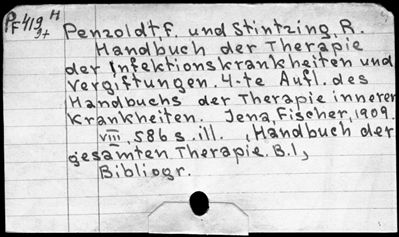 Pf 419 H
9+
Penzoldt, F. und Stintzing, R.
Handbuch der Therapie
der Infektionskrankheiten und
Vergiftungen. 4-te Aufl. des
Handbuchs der Therapie innerer
Krankheiten. Jena, Fischer, 1909.
VIII, 586 s. ill. , Handbuch der
gesamten Therapie. B. 1,
Bibliogr.